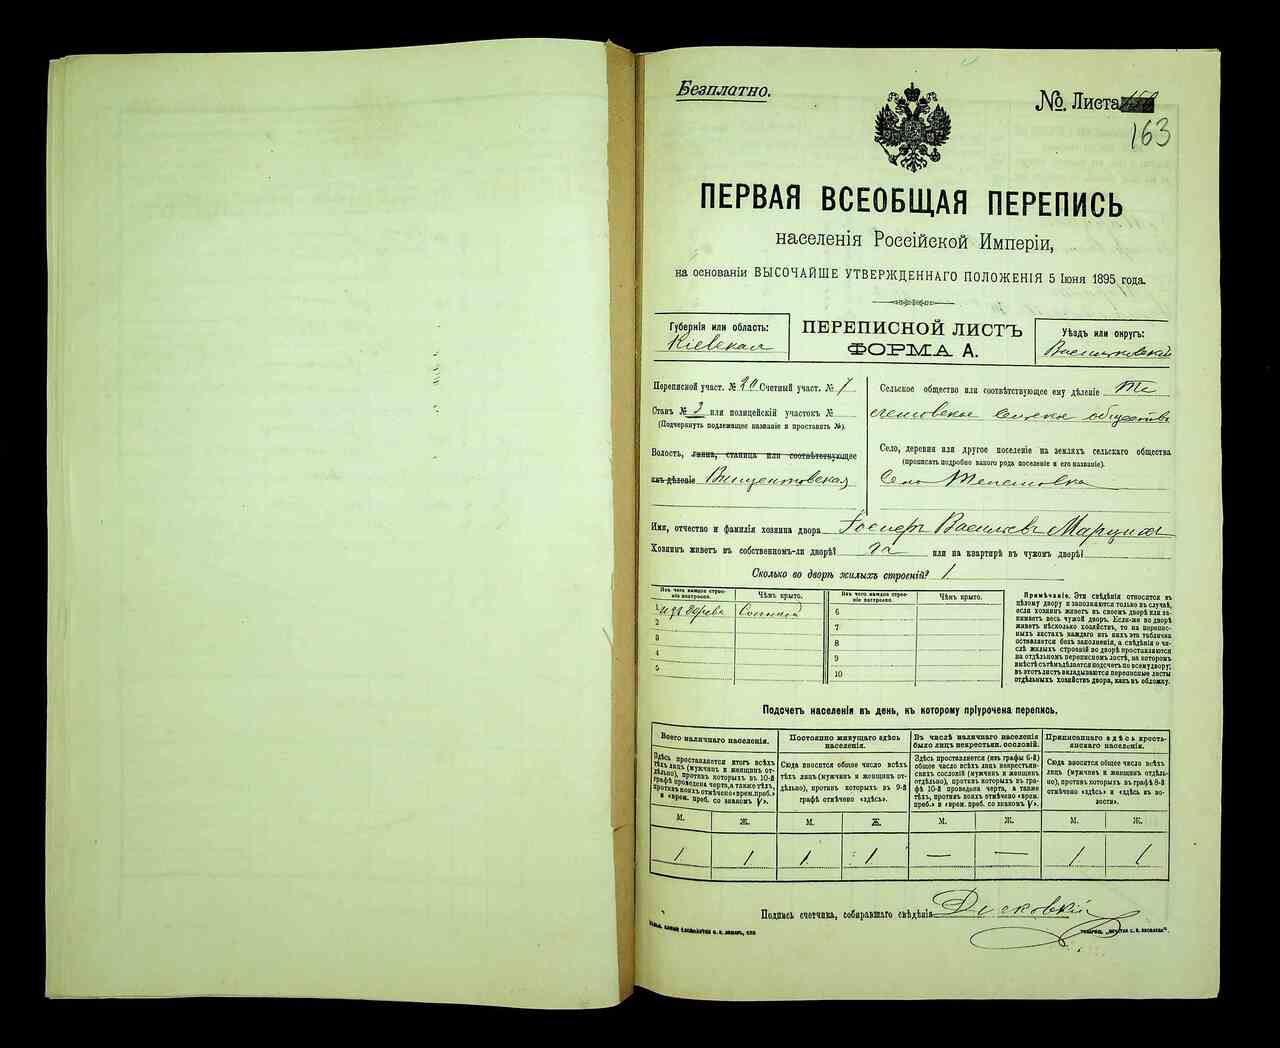 Безплатно.
№. Листа
163
ПЕРВАЯ ВСЕОБЩАЯ ПЕРЕПИСЬ
населенія Россійской Имперіи,
на основаніи ВЫСОЧАЙШЕ УТВЕРЖДЕННАГО ПОЛОЖЕНІЯ 5 Іюня 1895 года.
Губернія или область:
Кіевская
ПЕРЕПИСНОЙ ЛИСТЪ
ФОРМА А.
Уѣздъ или округъ:
Васильковскій
Переписной участ. № 20 Счетный участ. № 7
Станъ № 3 или полицейскій участокъ №
(Подчеркнуть подлежащее названіе и проставить №).
Волость, гмина, станица или соотвѣтствующее
имъ дѣленіе Винцентовская
Сельское общество или соотвѣтствующее ему дѣленіе Те
лешовское сельское общество
Село, деревня или другое поселеніе на земляхъ сельскаго общества
(прописать подробно какого рода поселеніе и его названіе).
Село Телешовка
Имя, отчество и фамилія хозяина двора Васильевъ
Хозяинъ живетъ въ собственномъ-ли дворѣ? да или на квартирѣ въ чужомъ дворѣ?
Сколько во дворѣ жилыхъ строеній? 1
Изъ чего каждое строеніе построено.
Чѣмъ крыто.
Изъ чего каждое строеніе построено.
Чѣмъ крыто.
1 изъ дерева Соломой
2
3
4
5
6
7
8
9
10
Примѣчаніе. Эти свѣдѣнія относятся къ
цѣлому двору и заполняются только въ случаѣ,
если хозяинъ живетъ въ своемъ дворѣ или за-
нимаетъ весь чужой дворъ. Если-же во дворѣ
живетъ нѣсколько хозяйствъ, то на перепис-
ныхъ листахъ каждаго изъ нихъ эта табличка
оставляется безъ заполненія, а свѣдѣнія о чи-
слѣ жилыхъ строеній во дворѣ проставляются
на отдѣльномъ переписномъ листѣ, на которомъ
вмѣстѣ съ тѣмъ дѣлается подсчетъ по всему двору;
въ этотъ листъ вкладываются переписные листы
отдѣльныхъ хозяйствъ двора, какъ въ обложку.
Подсчетъ населенія въ день, къ которому пріурочена перепись.
Всего наличнаго населенія.
Здѣсь проставляется итогъ всѣхъ
тѣхъ лицъ (мужчинъ и женщинъ от-
дѣльно), противъ которыхъ въ 10-й
графѣ проведена черта, а также тѣхъ,
противъ коихъ отмѣчено «врем. преб.»
и «врем. преб. со знакомъ V».
Постоянно живущаго здѣсь
населенія.
Сюда вносится общее число всѣхъ
тѣхъ лицъ (мужчинъ и женщинъ от-
дѣльно), противъ которыхъ въ 9-й
графѣ отмѣчено «здѣсь».
Въ числѣ наличнаго населенія
было лицъ некрестьян. сословій.
Здѣсь проставляется (изъ графы 6-й)
общее число всѣхъ лицъ некрестьян-
скихъ сословій (мужчинъ и женщинъ
отдѣльно), противъ которыхъ въ гра-
фѣ 10-й проведена черта, а также
тѣхъ, противъ коихъ отмѣчено «врем.
преб.» и «врем. преб. со знакомъ V».
Приписаннаго здѣсь кресть-
янскаго населенія.
Сюда вносится общее число всѣхъ
лицъ (мужчинъ и женщинъ отдѣль-
но), противъ которыхъ въ графѣ 8-й
отмѣчено «здѣсь» и «здѣсь въ во-
лости».
М. Ж. М. Ж. М. Ж. М. Ж.
1 1 1 1 — — 1 1
Подпись счетчика, собиравшаго свѣдѣнія